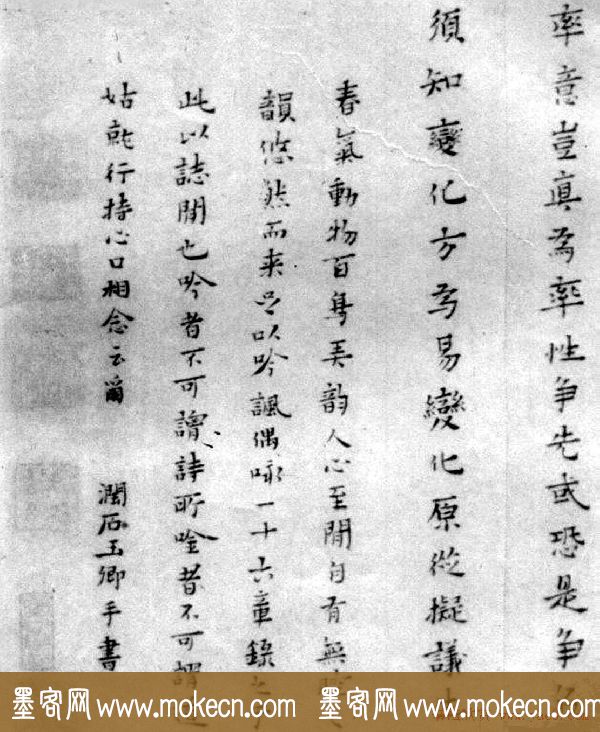 率意豈真為率性争先或恐是争
須知變化方為易變化原從擬議
春氣動物百鳥弄韵人心至閒自有無
韻悠然而来足以吟諷偶咏一十六章錄之
此以誌閒也吟者不可讀詩所唫者不可謂
姑就行持心口相念云爾
潤石玉卿手書
墨客网 www.mokecn.com 墨客网 www.mokecn.com